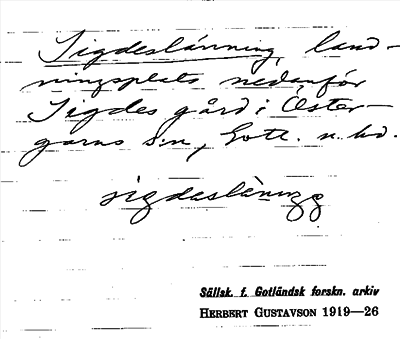 Sigdeslänning, land-
ningsplats nedanför
Sigdes gård i Öster-
garns s:n, Gotl. n. hd.
sigdeslänıŋg
Sällsk. f. Gotländsk forskn. arkiv
HERBERT GUSTAVSON 1919—26